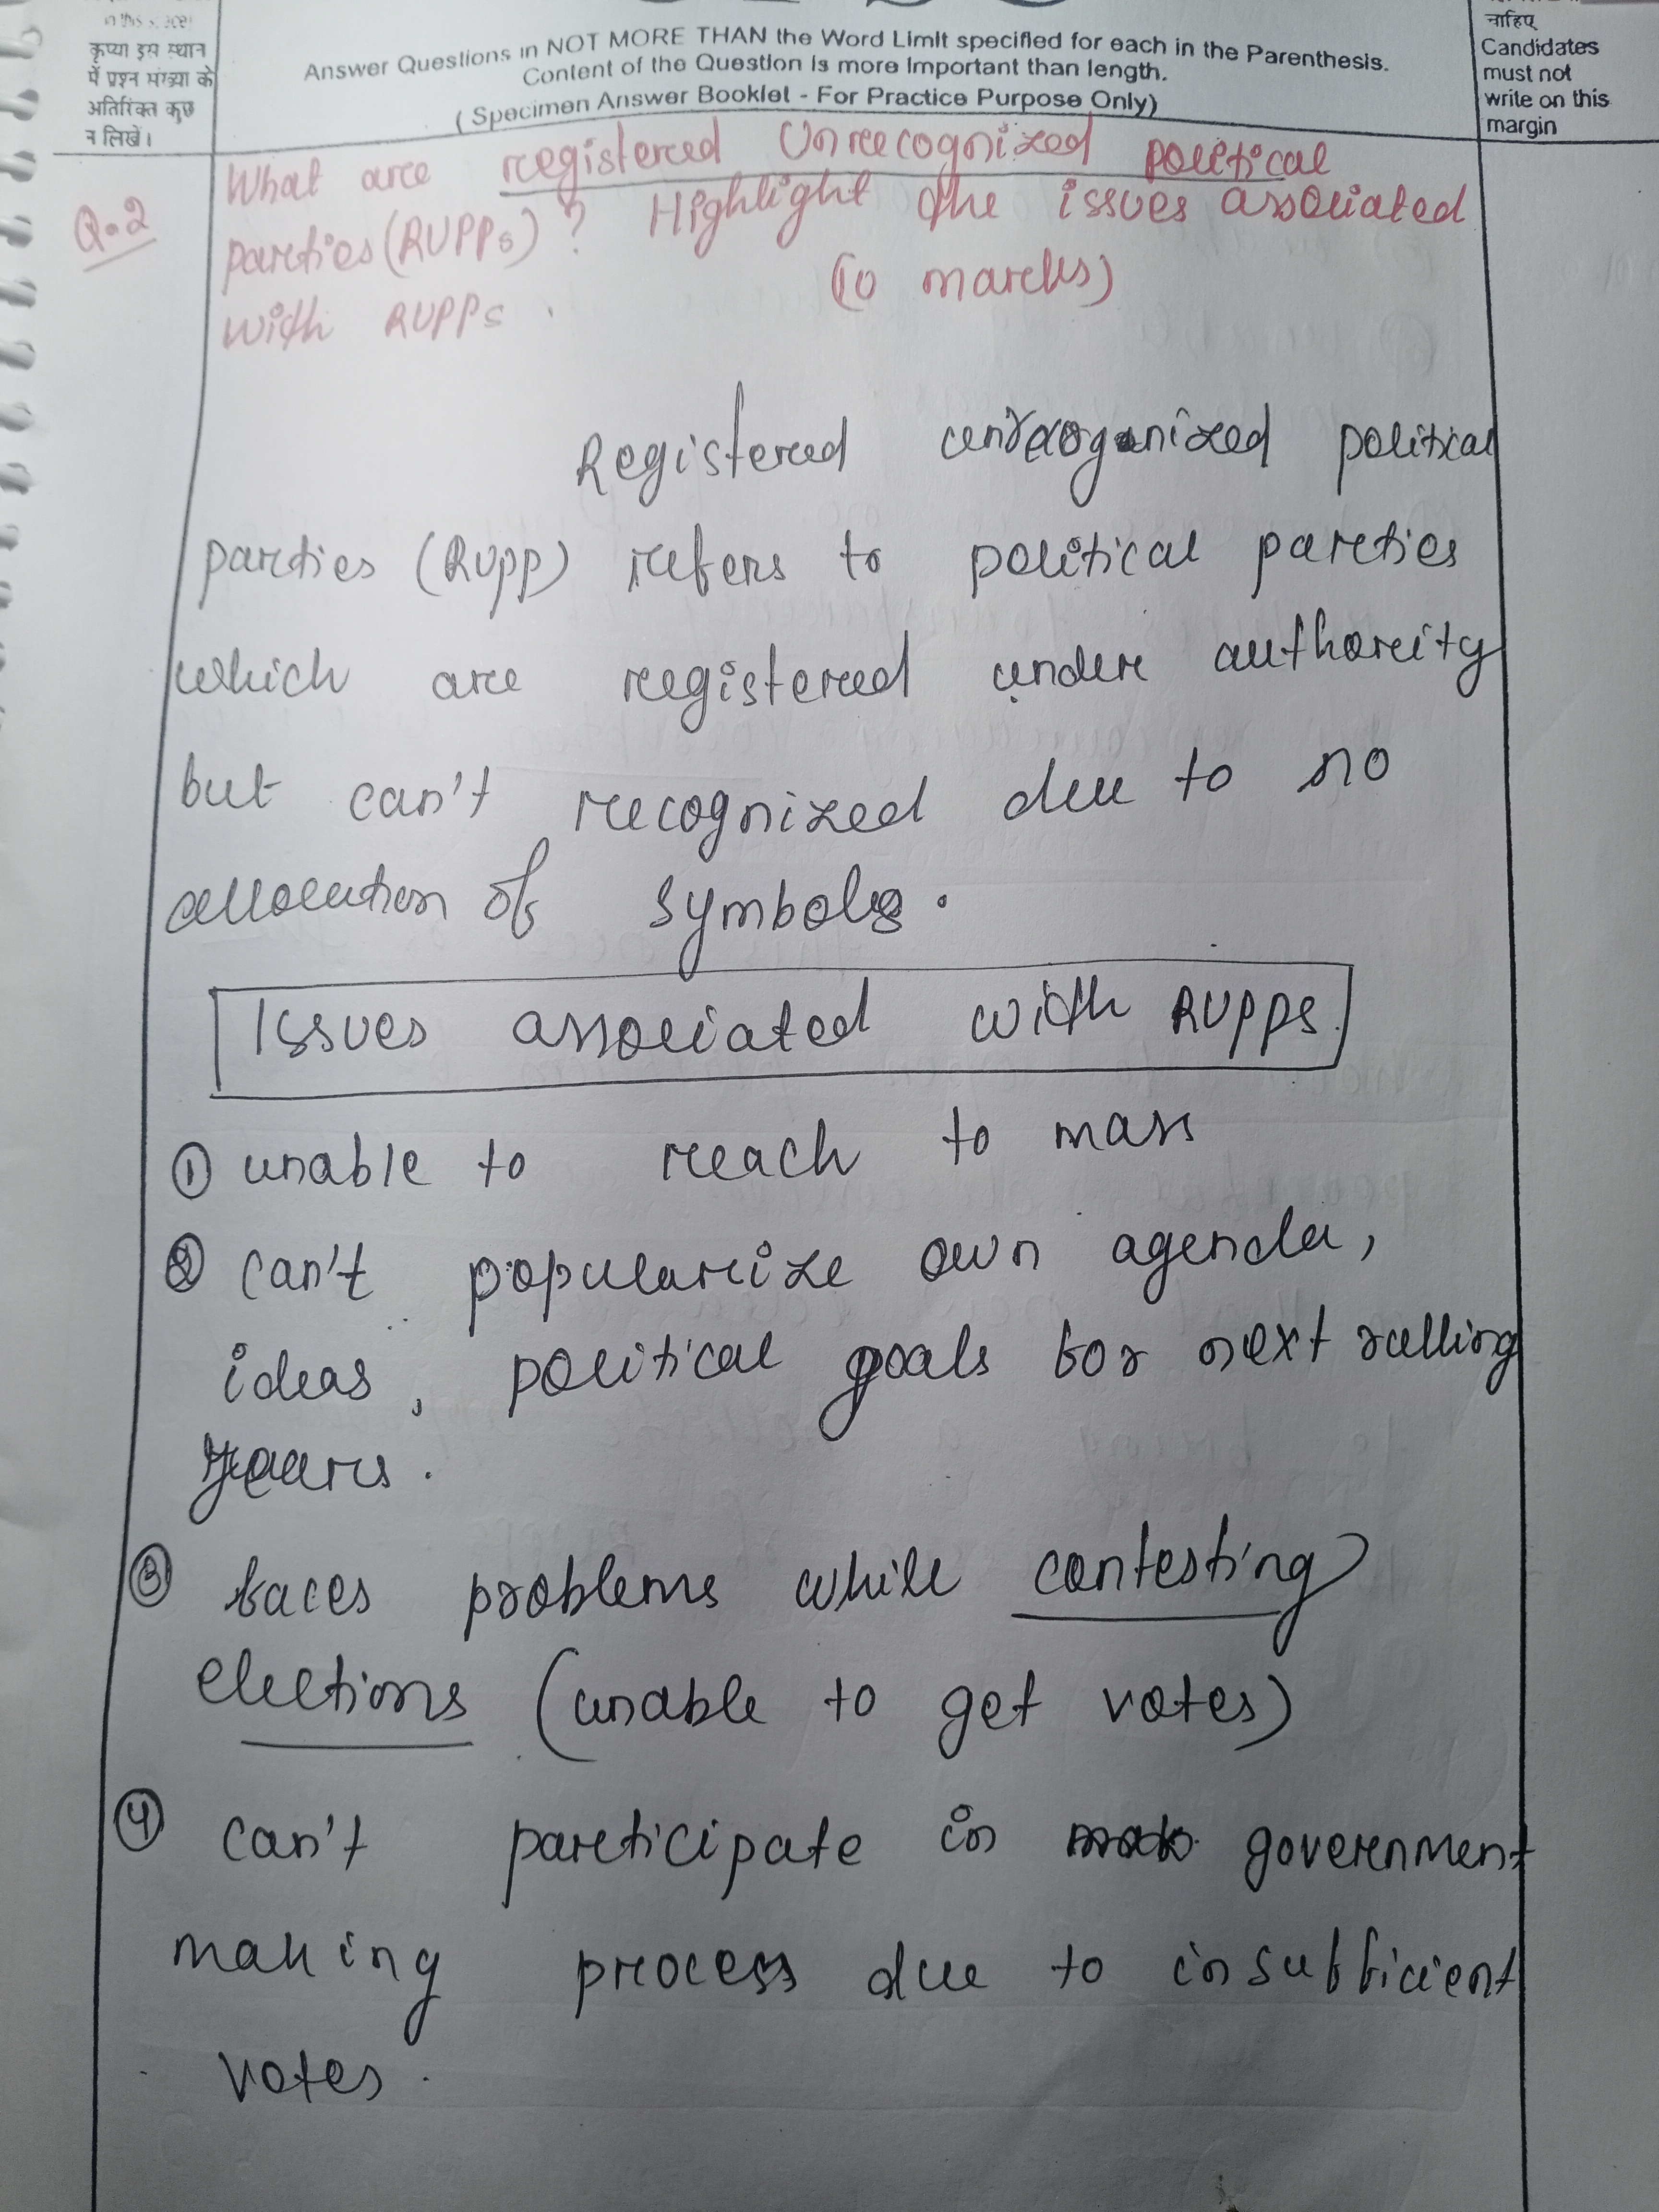 in this space
कृप्या इस स्थान
में प्रश्न संख्या के
अतिरिक्त कुछ
न लिखें।
Answer Questions in NOT MORE THAN the Word Limit specified for each in the Parenthesis.
Content of the Question is more important than length.
( Specimen Answer Booklet - For Practice Purpose Only)
चाहिए
Candidates
must not
write on this
margin
Q.2
What are registered Unrecognized political
parties (RUPPs)? Highlight the issues associated
with RUPPs.
(10 marks)
Registered unrecognized political
parties (RUPP) refers to political parties
which are registered under authority
but can't recognized due to no
allocation of symbols.
Issues associated with RUPPs.
① unable to reach to mass
② can't popularize own agenda,
ideas, political goals for next rulling
years.
③ faces problems while contesting
elections (unable to get votes)
④ can't participate in government
making process due to insufficient
votes.